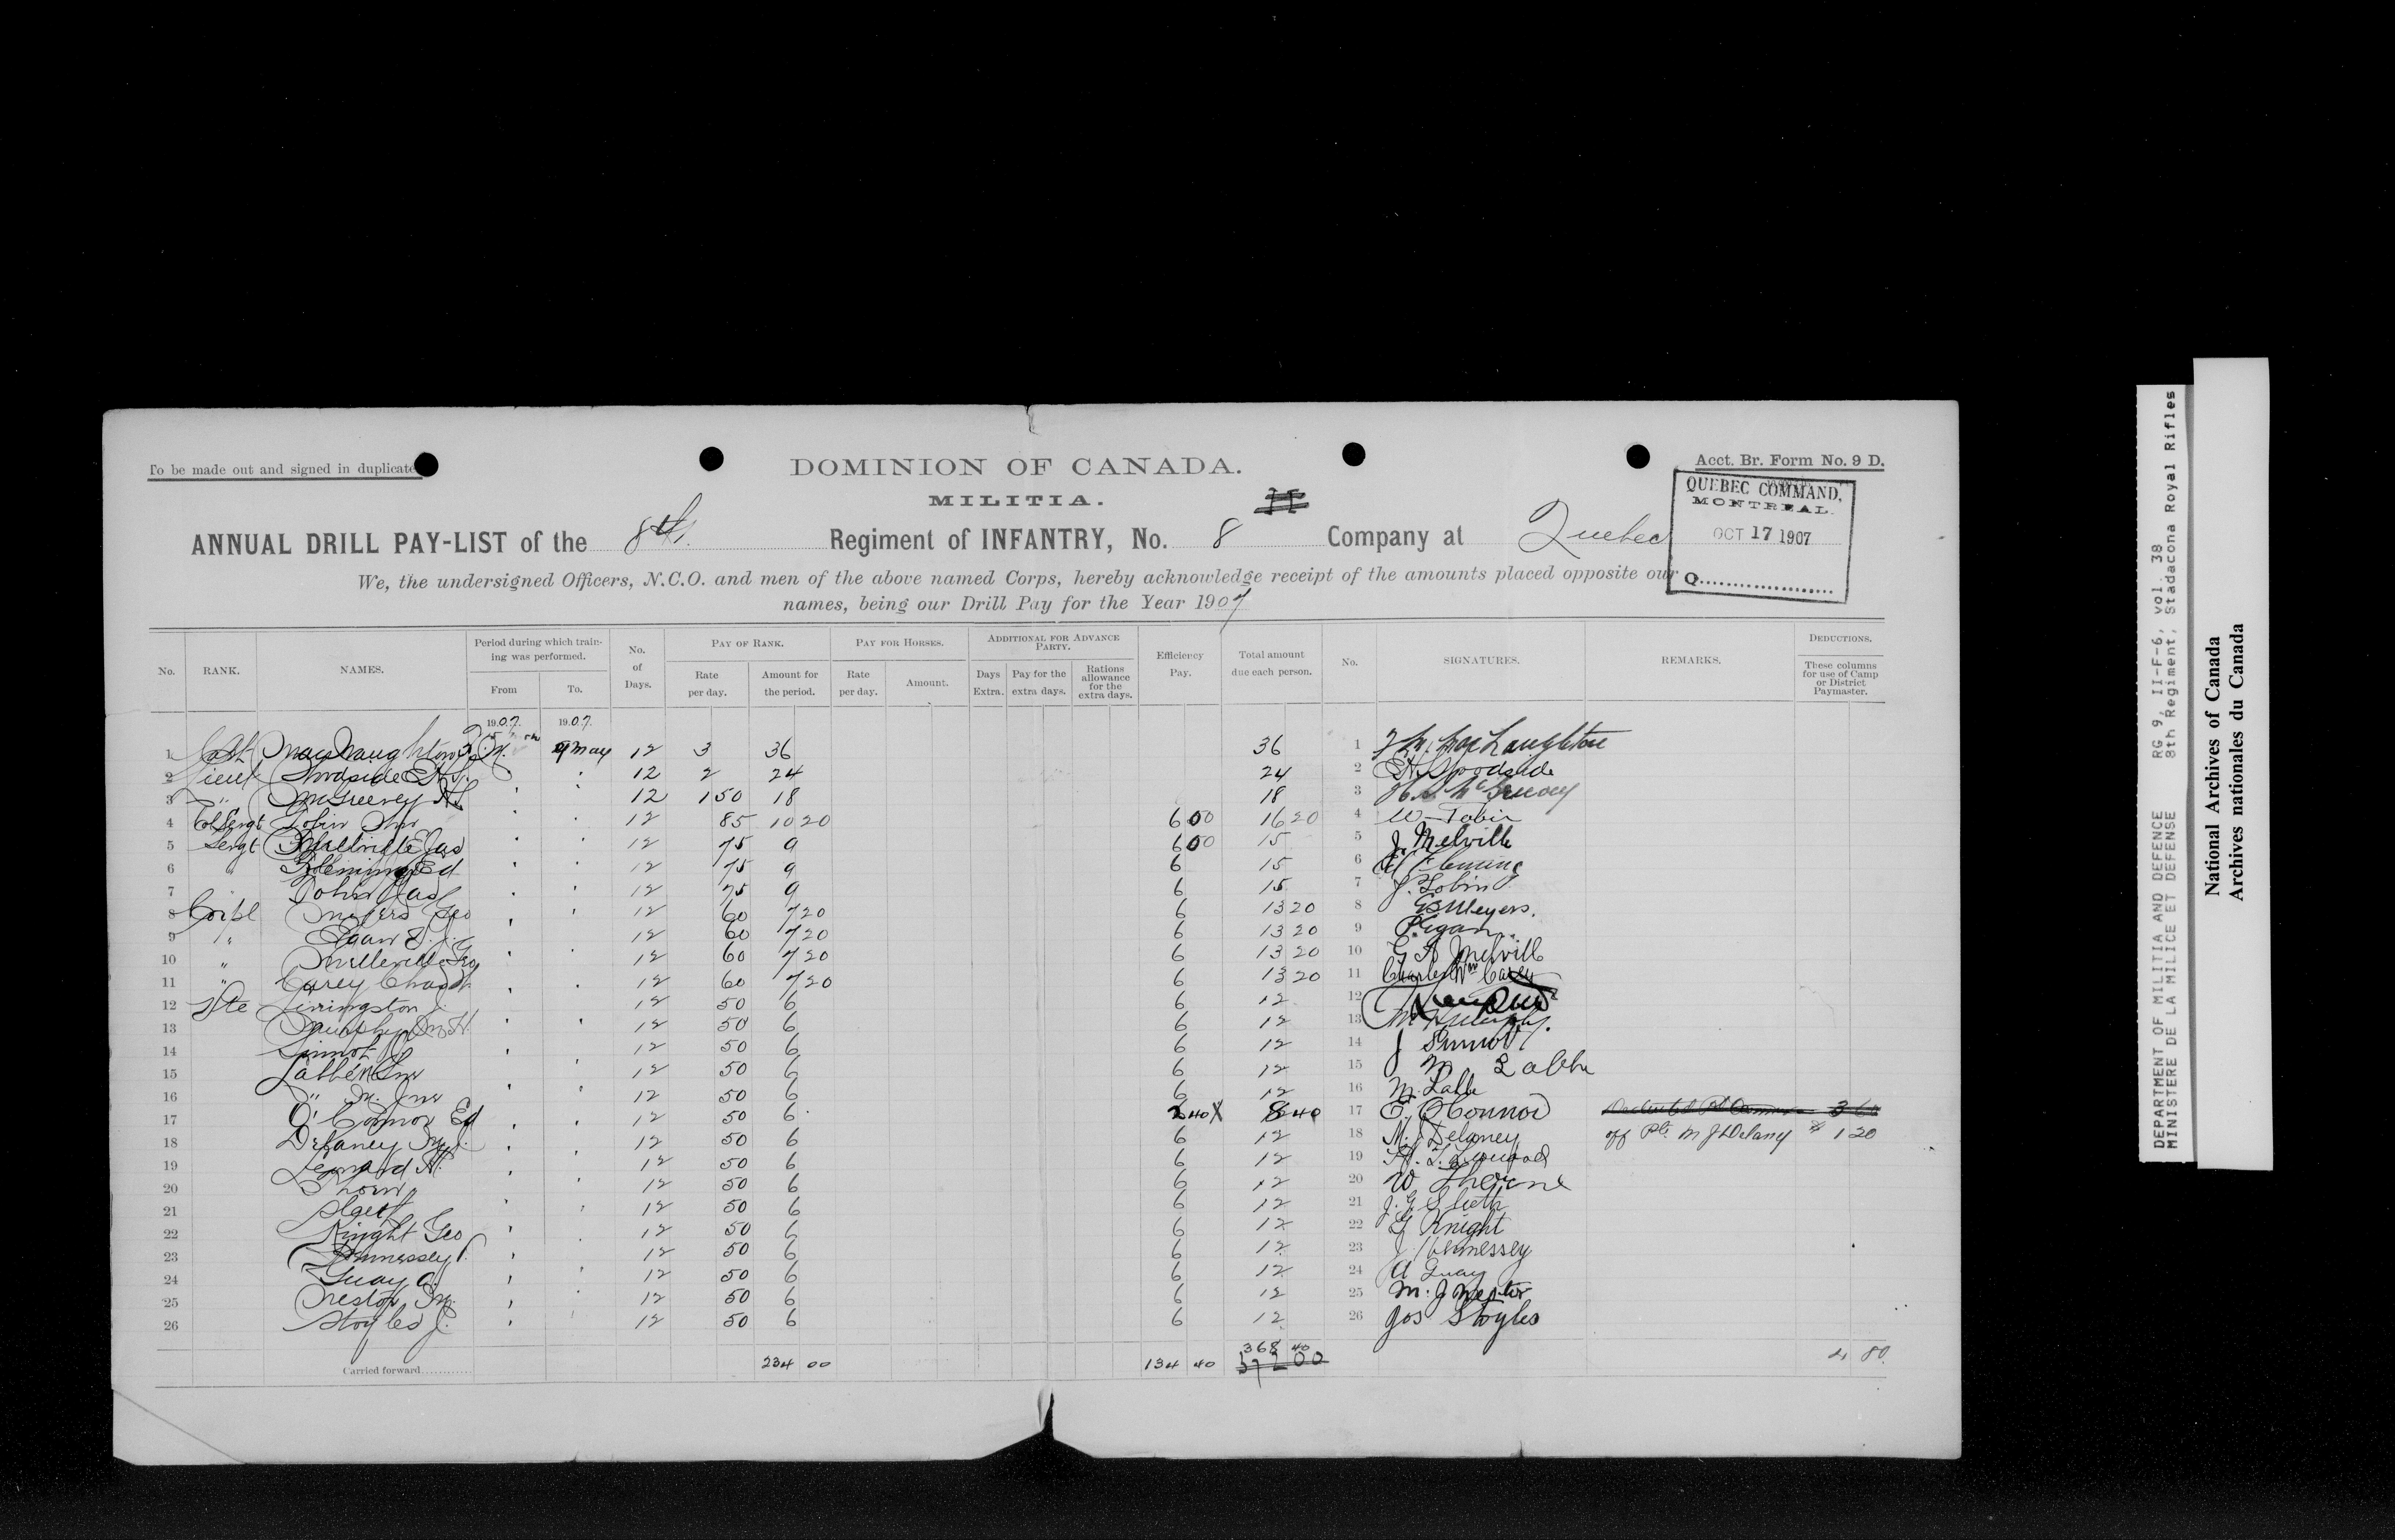 To be made out and signed in duplicate
DOMINION OF CANADA.
Acct. Br. Form No. 9 D.
MILITIA.
QUEBEC COMMAND,
MONTREAL.
OCT 17 1907
Q
ANNUAL DRILL PAY-LIST of the 8th. Regiment of INFANTRY, No. 8 Company at Quebec
We, the undersigned Officers, N.C.O. and men of the above named Corps, hereby acknowledge receipt of the amounts placed opposite our
names, being our Drill Pay for the Year 1907
No. RANK. NAMES. Period during which training was performed. From To. No. of Days. PAY OF RANK. Rate per day. Amount for the period. PAY FOR HORSES. Rate per day. Amount. ADDITIONAL FOR ADVANCE PARTY. Days Extra. Pay for the extra days. Rations allowance for the extra days. Efficiency Pay. Total amount due each person. No. SIGNATURES. REMARKS. DEDUCTIONS. These columns for use of Camp or District Paymaster.
1907. 1907.
1 Capt MacNaughton 9 May 12 3 36 36 1
2 Lieut Woodside E.H.S. 12 2 24 24 2 Woodside
3 " McGreevy 12 1 50 18 18 3 McGreevy
4 Col Sergt Tobin 12 85 10 20 6 00 16 20 4 W Tobin
5 Sergt Melville Jas 12 75 9 6 00 15 5 J. Melville
6 " Fleming Ed 12 75 9 6 15 6 Ed Fleming
7 Tobin Jas 12 75 9 6 15 7 J. Tobin
8 Corpl Myers Geo 12 60 7 20 6 13 20 8 G Meyers.
9 " Egan P. 12 60 7 20 6 13 20 9 P. Egan.
10 " Melville Geo 12 60 7 20 6 13 20 10 G A Melvill
11 " Carey Chas 12 60 7 20 6 13 20 11 Charles Wm Carey
12 Pte Livingston J. 12 50 6 6 12 12
13 Murphy M H. 12 50 6 6 12 13 M H Murphy.
14 Sinnot J. 12 50 6 6 12 14 J Sinnot
15 Labbé M Snr 12 50 6 6 12 15 M Labbe
16 " M. Jnr 12 50 6 6 12 16 M. Labbe
17 O'Connor Ed 12 50 6 2 40 X 8 40 17 E. O'Connor 3 60
18 Delaney M. J. 12 50 6 6 12 18 M. J Delaney off Pte. M J Delaney $ 1 20
19 Leonard H. 12 50 6 6 12 19
20 12 50 6 6 12 20 W
21 12 50 6 6 12 21 J. G Sleeth
22 Knight Geo 12 50 6 6 12 22 G Knight
23 Hennessey J. 12 50 6 6 12 23 J Hennessey
24 Guay A. 12 50 6 6 12 24 A Guay
25 Nestor M. 12 50 6 6 12 25 M. J Nestor
26 Stoyles J. 12 50 6 6 12 26 Jos Stoyles
368 40
Carried forward 234 00 134 40 372 00 4 80
DEPARTMENT OF MILITIA AND DEFENCE RG 9, II-F-6, vol. 38
MINISTERE DE LA MILICE ET DEFENSE 8th Regiment, Stadacona Royal Rifles
National Archives of Canada
Archives nationales du Canada